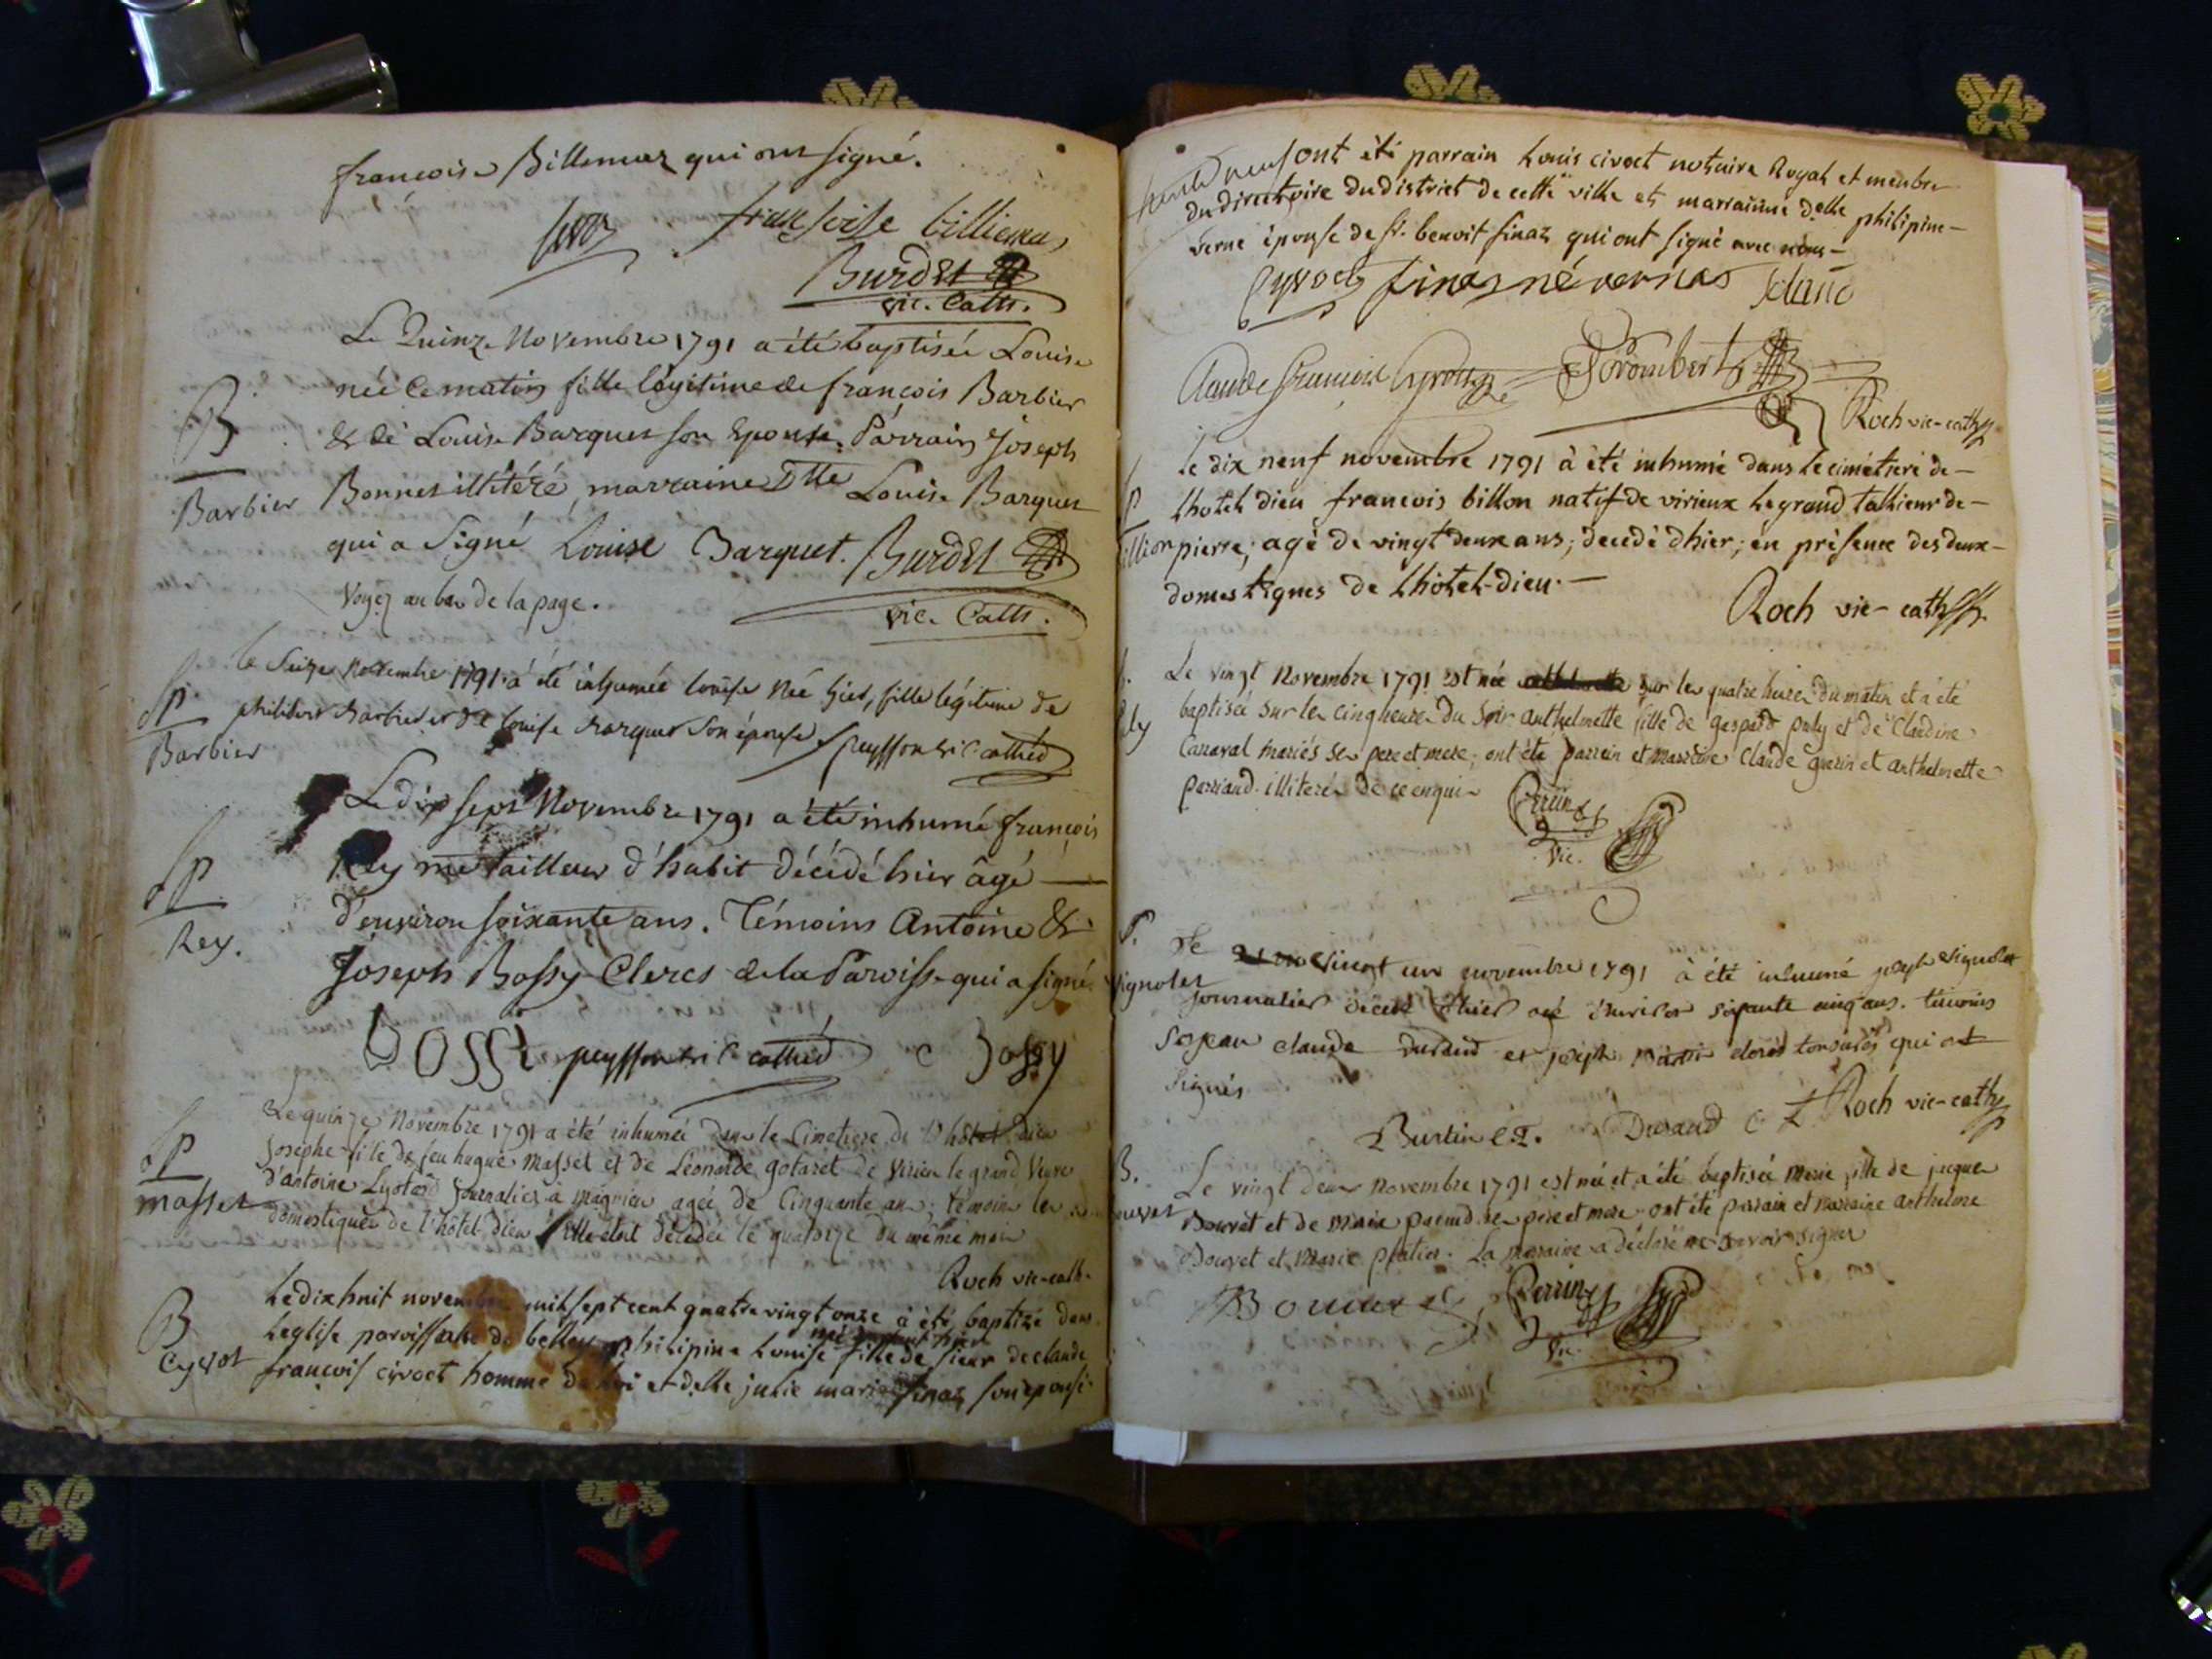 francoise Billiemaz qui ont signé.
francoise billiemas
Burdet
vic. Cath.
Le Quinze Novembre 1791 a été baptisée Louise
née ce matin fille légitime de françois Barbier
B
& de Louise Barquet son Epouse. Parrain Joseph
Barbier
Bonnet illitéré, marraine Dlle Louise Barquet
qui a Signé Louise Barquet. Burdet
vic. Cath.
Voyez au bas de la page.
le Seize novembre 1791 a été inhumée louise née hier, fille légitime de
Sp
philibert barbier et de louise barquet son épouse peysson vic cathed
Barbier
Le dix sept Novembre 1791 a été inhumé françois
Rey me tailleur d'habit décédé hier âgé
Sp
d'environ soixante ans. Témoins Antoine &
Rey.
Joseph Bossy Clercs de la Paroisse qui a signé
Bossi peysson vic cathed c Bossy
Le quinze Novembre 1791 a été inhumée dans le Cimetiere de l'hôtel dieu
Sp
Josephe fille de feu hugue Masset et de Léonarde gotaret de Virieu le grand Veuve
masset
d'antoine Lyotard Journalier à Magnieu agée de Cinquante ans; témoins les
domestiques de l'hôtel dieu Elle étoit décédée le quatorze du même mois
Roch vic-cath.
Le dix huit novembre mil sept cent quatre vingt onze à été baptizé dans
B
Leglise paroissiale de belley philipine Louise fille de sieur de claude
Cyvot
francois civoct homme de loi et delle julie marie finaz son épouse
ont été parrain Louis civoct notaire Royal et menbre
du directoire du district de cette ville et marrainne delle philipine
verne épouse de sr. benoit finaz qui ont signé avec nous
Cyvoct finaz né vernas
Claude francois Cyvoct Brombert
Roch vic-cath
le dix neuf novembre 1791 à été inhumé dans le cimétiere de
Lhotel dieu francois billon natif de virieux Le grand tallieur de
pierre; agé de vingt deux ans; decedé dhier; en présence des deux
domestiques de Lhotel-dieu.
Roch vic-cath
Le vingt Novembre 1791 est née sur les quatre heures du matin et a été
baptisée sur les cinq heures du Soir anthelmette fille de gaspard puly et de Claudine
Caraval mariés ses pere et mere; ont été parrein et marreine Claude guerin et anthelmette
parriaud illiterés de ce enquis
Perrin
Vic.
S.
Le vingt un novembre 1791 à été inhumé joseph vignolet
Vignolet
journalier décédé d'hier agé d'environ soixante cinq ans. témoins
Sr jean claude durand et joseph clercs tonsurés qui ont
Signés
Burtin C T. Durand c t Roch vic-cath
B.
Le vingt deux novembre 1791 est née et a été baptisée Marie fille de jacque
Bouvet
Bouvet et de Marie ses père et mere ont été parrain et marraine anthelme
Bouvet et Marie platier. La marraine a déclaré ne savoir signer
Bouvet Perrin
Vic.